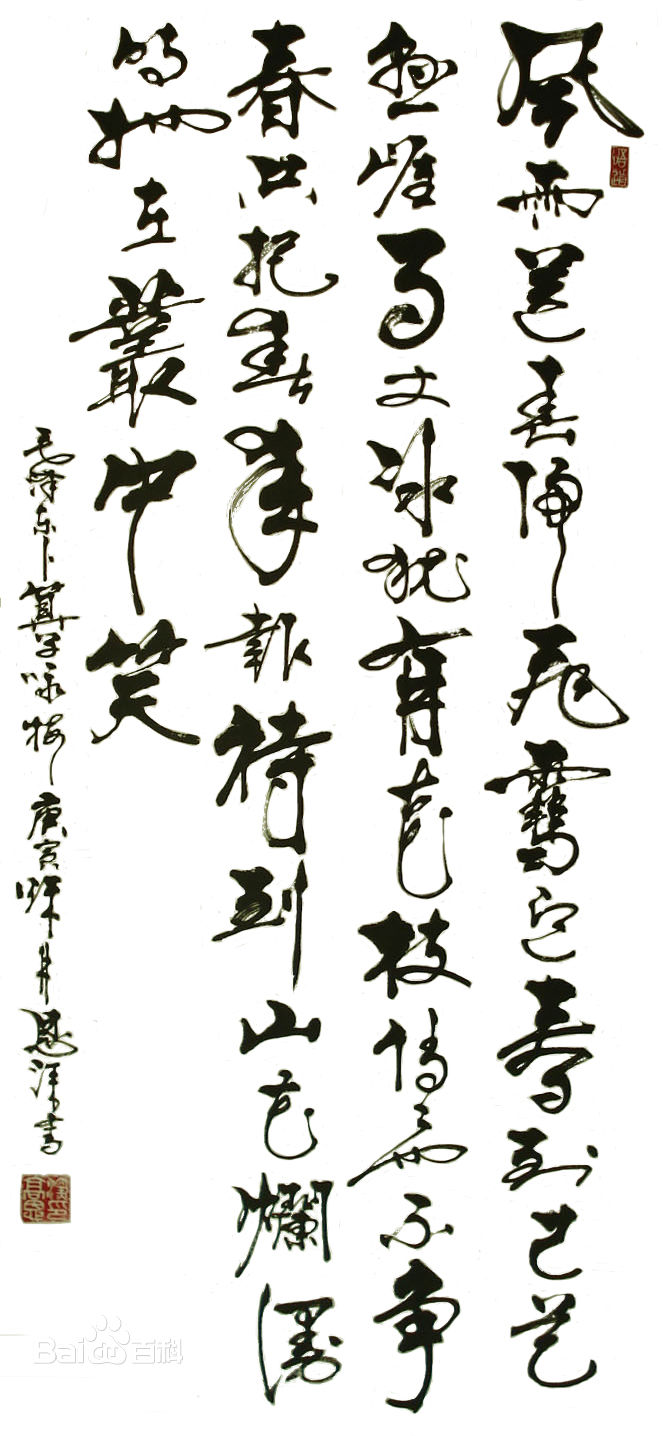 風雨送春歸飛雪迎春到已是
懸崖百丈冰犹有花枝俏〻也不争
春只把春来報待到山花爛漫
时她在叢中笑
毛泽东卜算子咏梅 庚寅 月 书
Bai百科